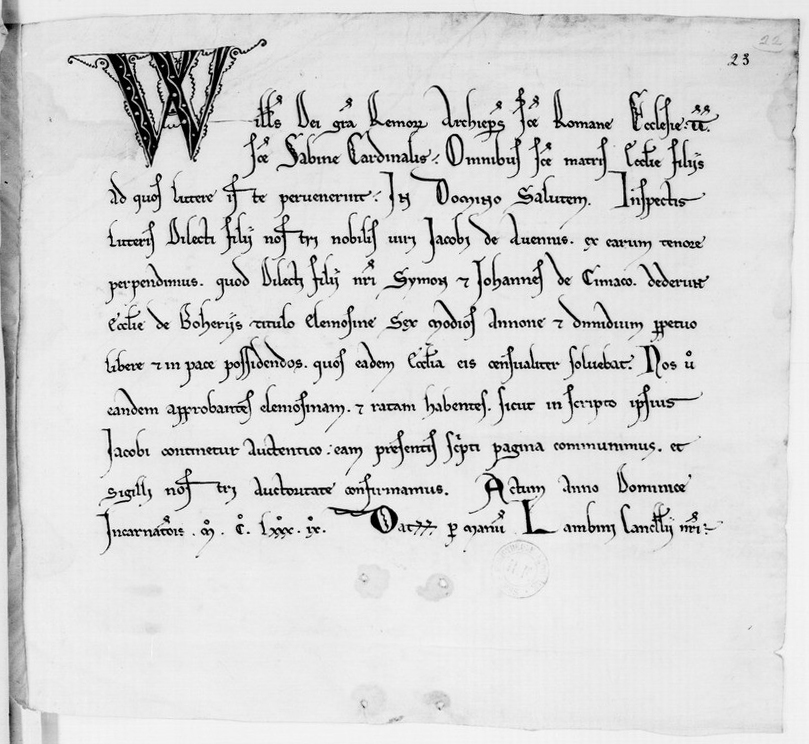 22
23
Willś Dei gr̃a Remoꝝ Archiep̃s S̃ce Romane Ecclesie t̃t̃.
S̃ce Sabine Cardinalis. Omnibus S̃ce matris Eccl̃ie filijs
ad quos littere iste pervenerint. In Domino Salutem. Inspectis
litteris Dilecti filij nostri nobilis viri Jacobi de Avennis. ex earum tenore
perpendimus. quod Dilecti filij nr̃i Symon ⁊ Johannes de Cimaco. dederunt
Eccl̃ie de Boherijs titulo elemosine Sex modios Annone ⁊ dimidium ꝑpetuo
libere ⁊ in pace possidendos. quos eadem Eccl̃ia eis censualiter solvebat. Nos v̊
eandem approbantes elemosinam. ⁊ ratam habentes. sicut in scripto ipsius
Jacobi continetur Autentico: eam presentis sc̃pti pagina communimus. et
sigilli nostri auctoritate confirmamus. Actum Anno Dominice
Incarnat̃ois. M̊. C̊. Lxxx. ix̊. Dat̃ ꝑ manũ Lambini Cancell̃ij nr̃i